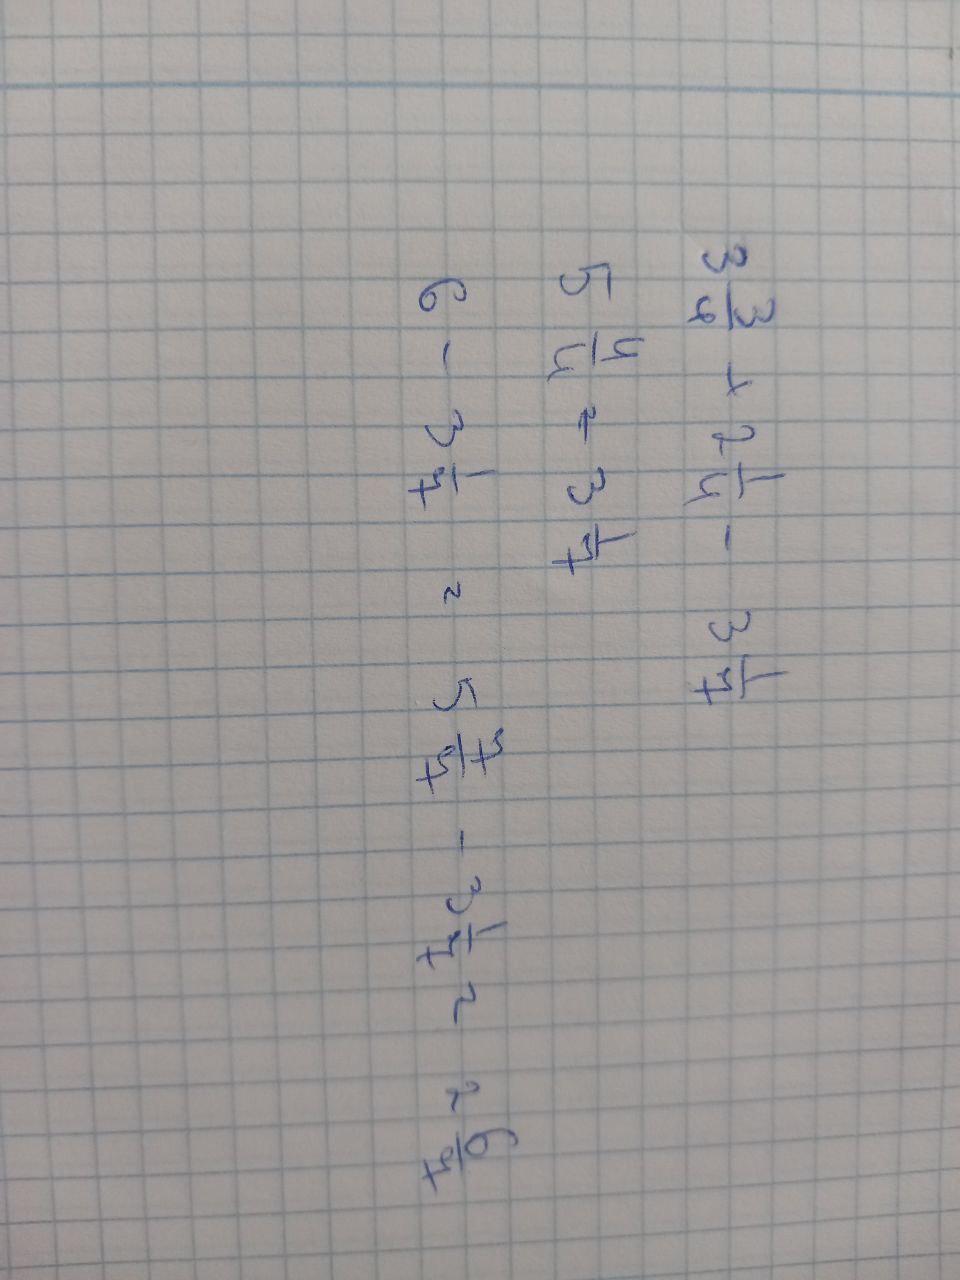 3 3/4 + 2 1/4 - 3 1/7
5 4/4 = 3 1/7
6 - 3 1/7 = 5 7/7 - 3 1/7 = 2 6/7